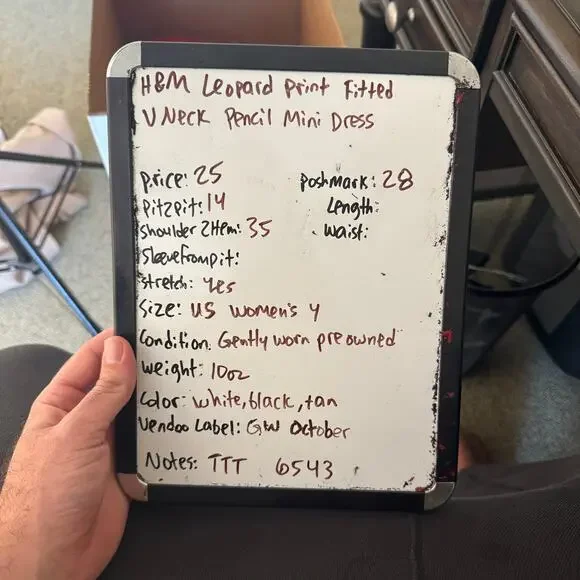 H&M Leopard print Fitted
V Neck Pencil Mini Dress
price: 25
Poshmark: 28
Pit2pit: 14
Length:
Shoulder 2Hem: 35
Waist:
Sleevefrompit:
stretch: yes
Size: US women's 4
Condition: Gently worn pre owned
Weight: 10oz
Color: white, black, tan
Vendoo Label: GW October
Notes: TTT 6543